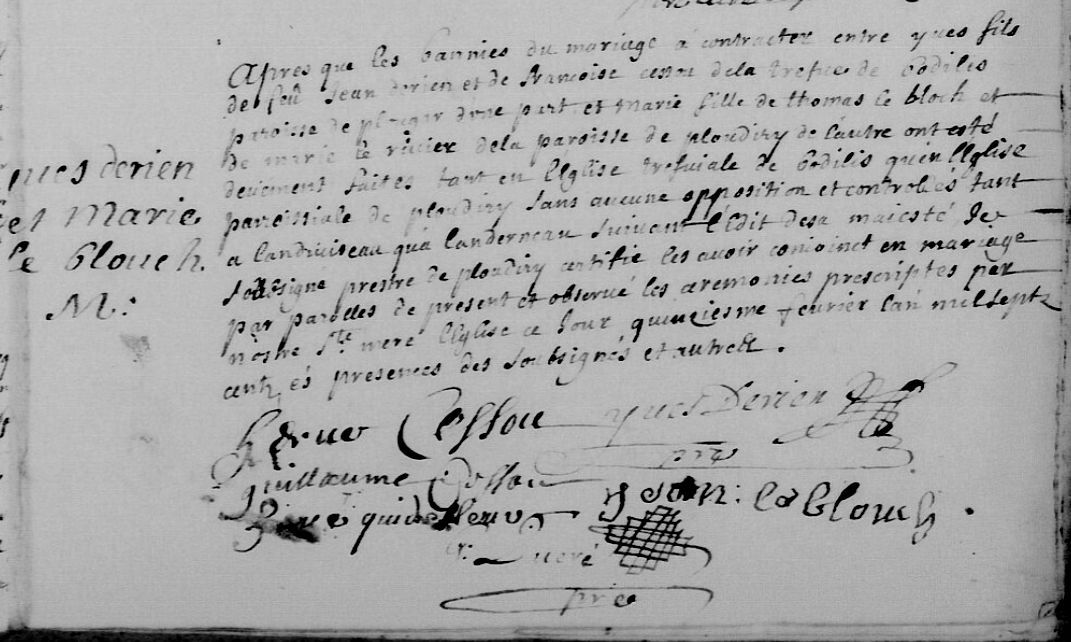 Apres que les bannies du mariage a contracter entre yues fils
de feu Jean derien et de francoise cessou dela trefue de bodilis
paroisse de plougar d'une part et Marie fille de thomas le bloch et
de marie le rivier dela paroisse de ploudiry de l'autre ont esté
yues derien
deuement faites tant en l'Eglise trefuiale de bodilis qu'en l'Eglise
et Marie
paroissiale de ploudiry sans aucune opposition et controlées tant
le blouch.
a landiuiseau qu'a landerneau suiuant l'Edit de sa maiesté Je
M:
soubsigné prestre de ploudiry certifie les auoir conioinct en mariage
par parolles de present et obserué les ceremonies prescriptes par
nostre Ste mere l'Eglise ce Jour quinziesme feurier l'an mil sept
cents, es presences des soubsignés et autres.
herue Cessou yues Derien
pre
guillaume Cessou
yuen: le blouch.
pre